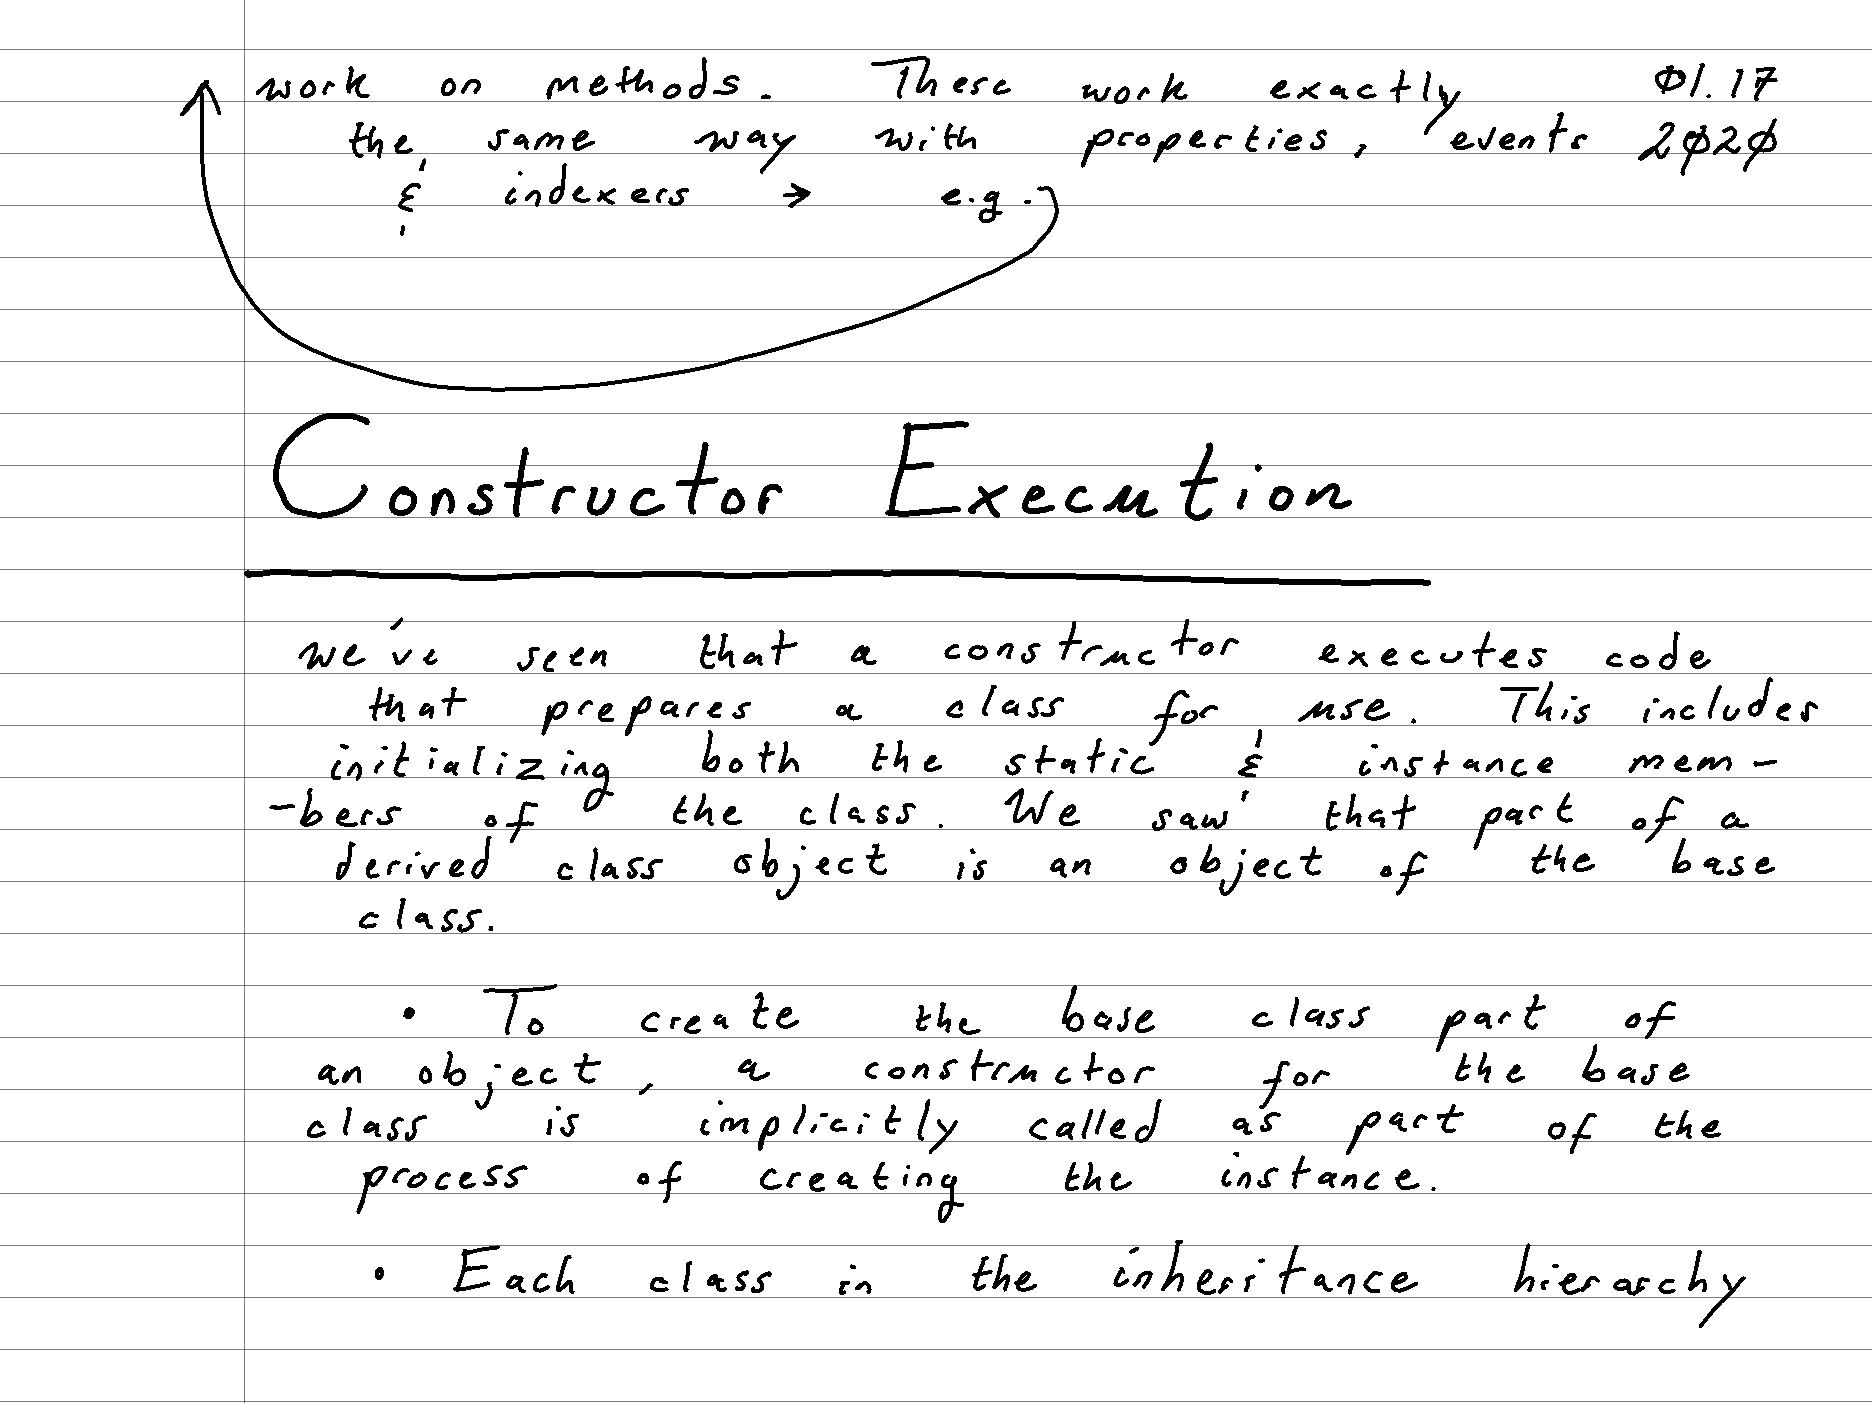 work on methods. These work exactly 01.17
the same way with properties, events 2020
& indexers → e.g.
Constructor Execution
we've seen that a constructor executes code
that prepares a class for use. This includes
initializing both the static & instance mem-
-bers of the class. We saw that part of a
derived class object is an object of the base
class.
• To create the base class part of
an object, a constructor for the base
class is implicitly called as part of the
process of creating the instance.
• Each class in the inheritance hierarchy